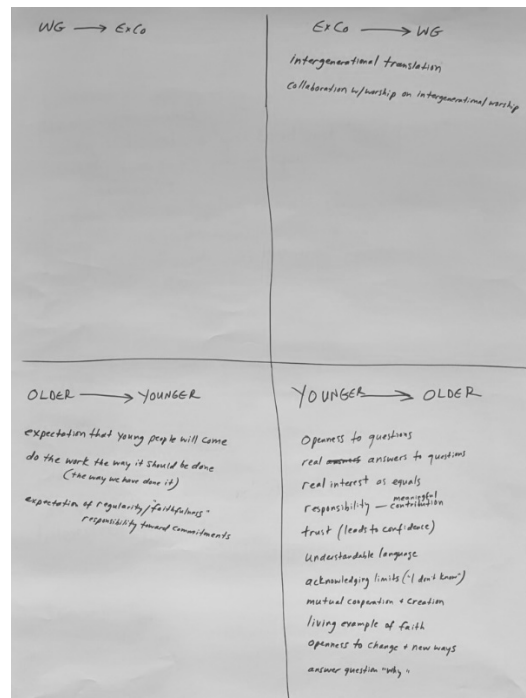 WG → ExCo
ExCo → WG
Intergenerational translation
Collaboration w/worship on intergenerational worship
OLDER → YOUNGER
expectation that young people will come
do the work the way it should be done
(the way we have done it)
expectation of regularity/"faithfulness"
responsibility toward commitments
YOUNGER → OLDER
Openness to questions
real answers to questions
real interest as equals
responsibility — meaningful contribution
trust (leads to confidence)
understandable language
acknowledging limits ("I don't know")
mutual cooperation + creation
living example of faith
openness to change + new ways
answer question "why"